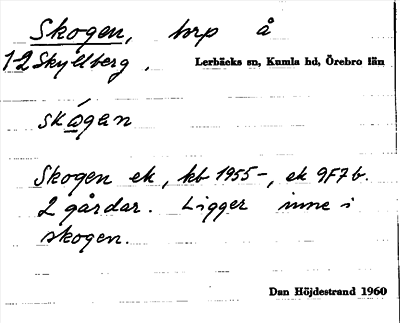 Skogen, hrp å
1-2 Skyllberg. Lerbäcks sn, Kumla hd, Örebro län
skógan
Skogen ek, kb 1955-, ek 9F7b.
2 gårdar. Ligger inne i
skogen.
Dan Höjdestrand 1960